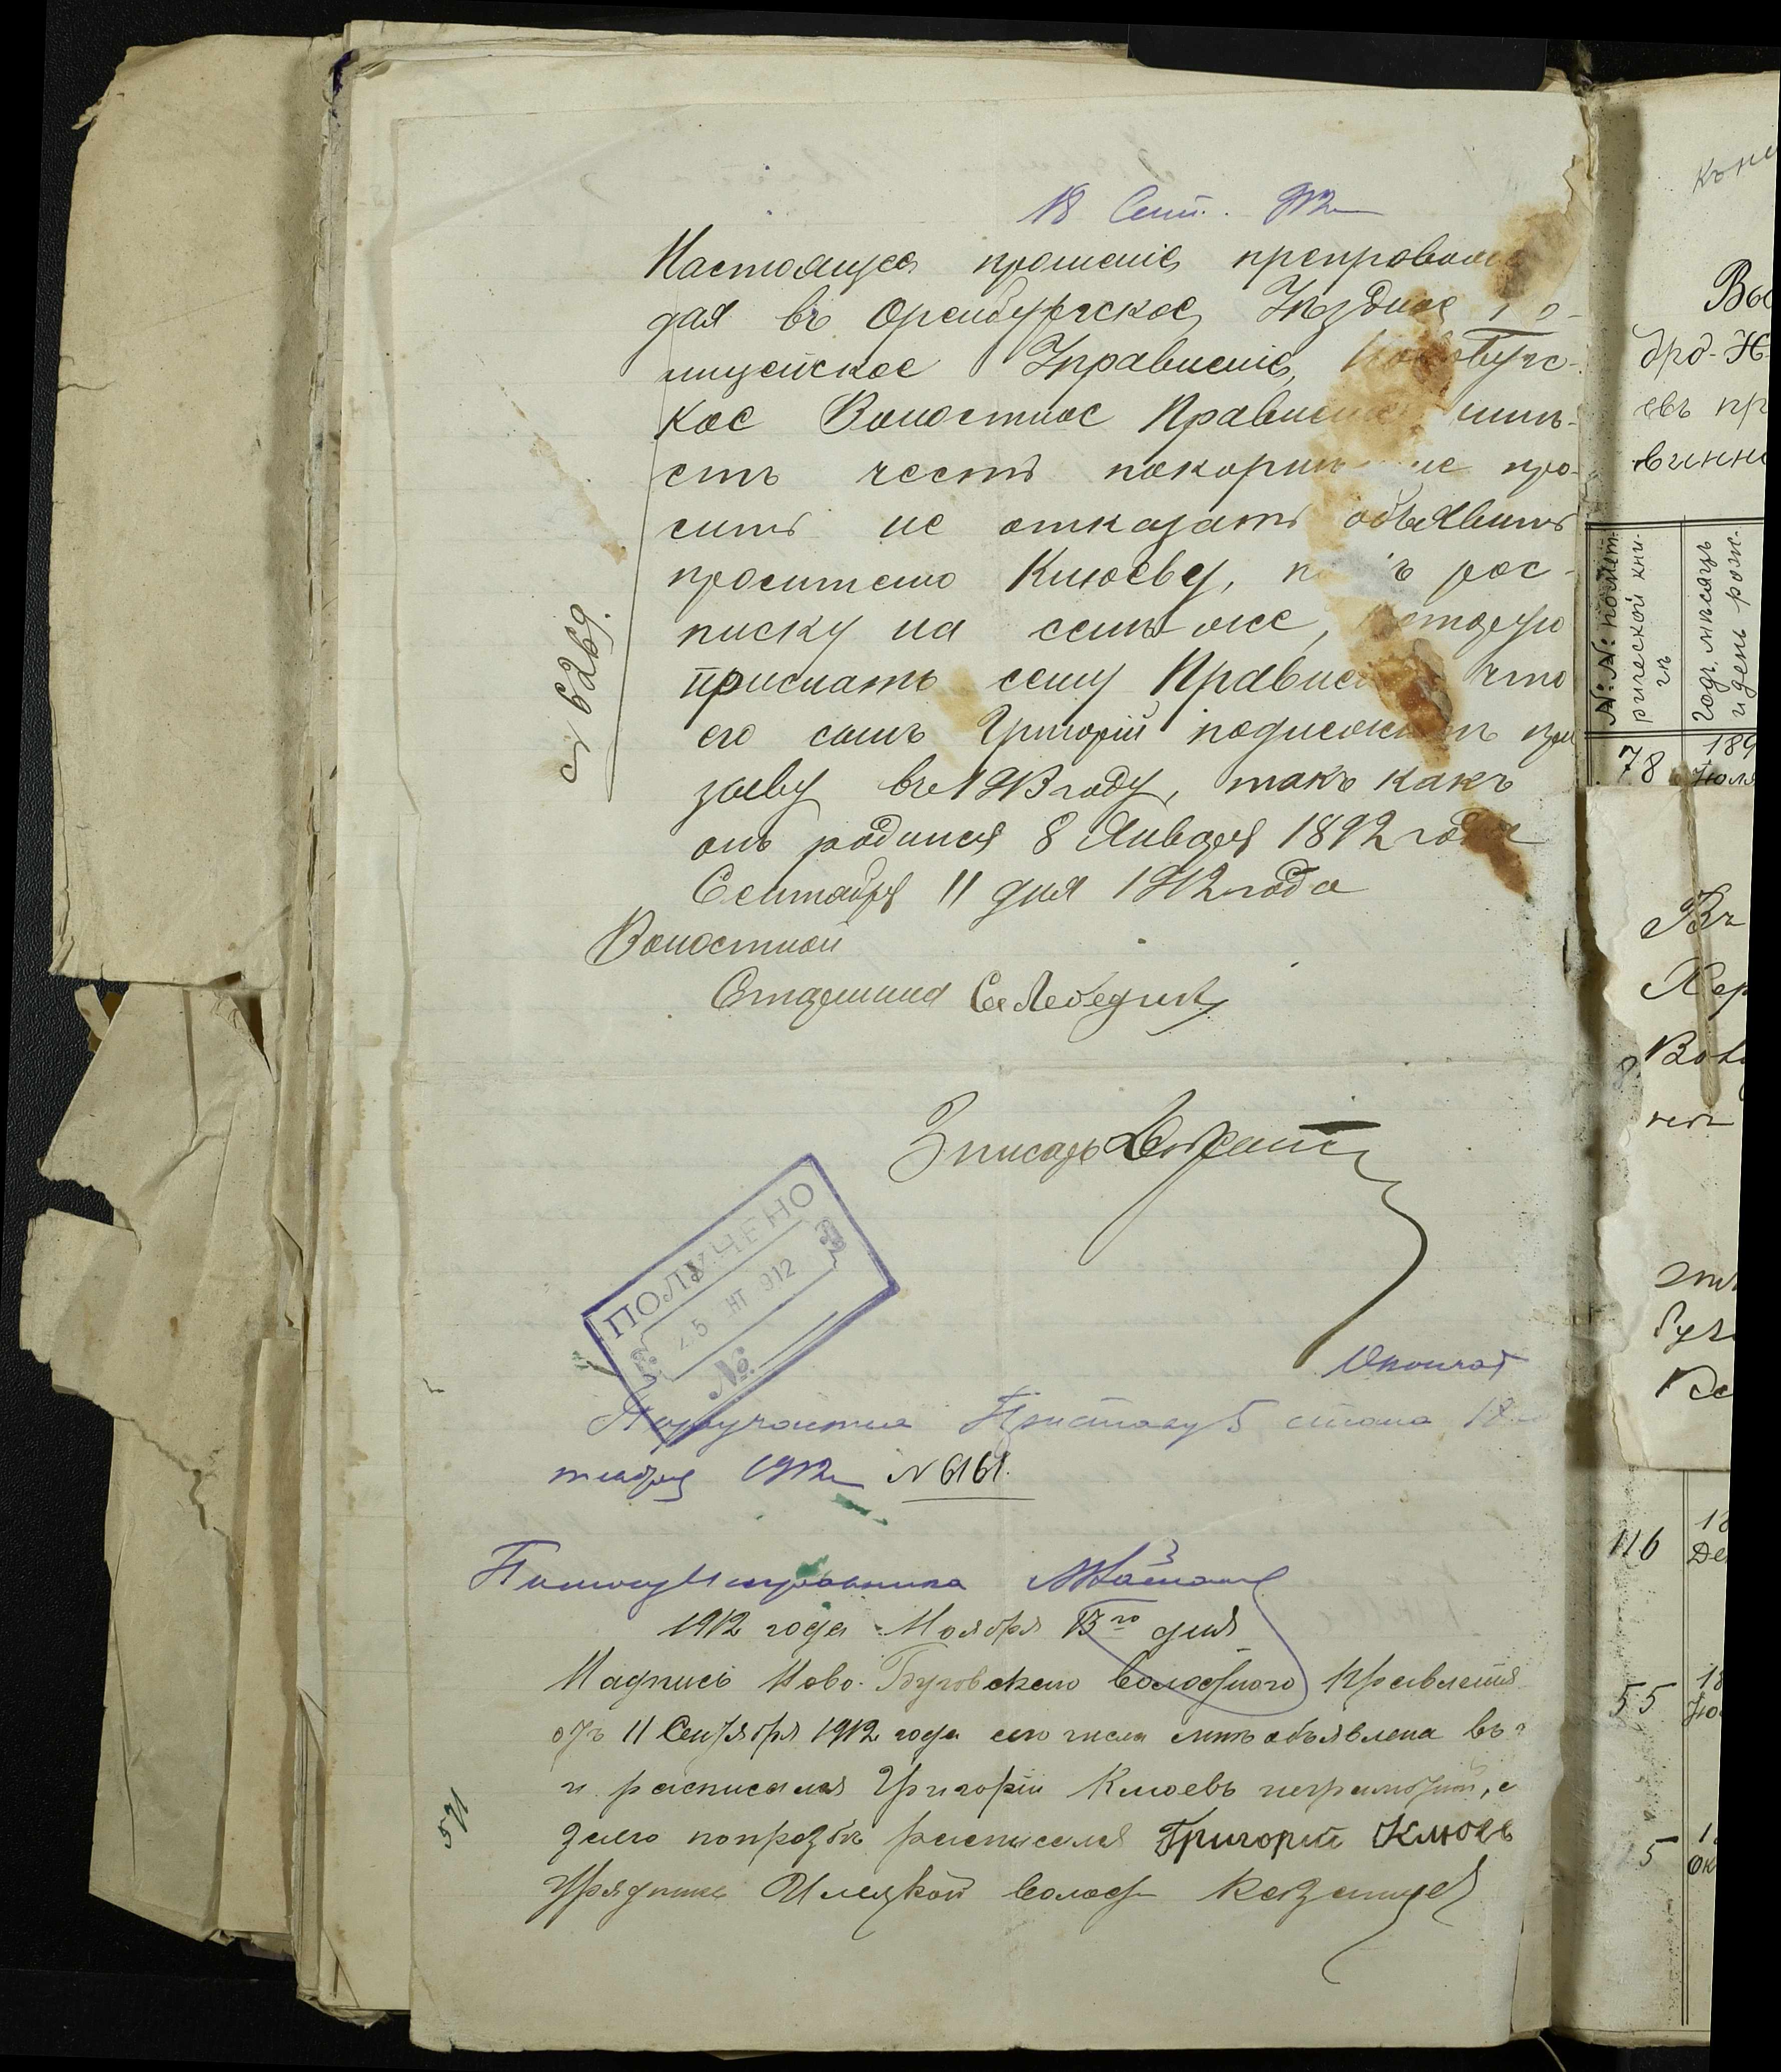 18 Сент. 912
Настоящее прошеніе препровож
дая въ Оренбургское Уѣздное По-
лицейское Управленіе, Новобугс-
кое Волостное Правленіе имѣ-
етъ честь покорнѣйше про-
сить не отказать объявить
просителю Клюеву, подъ рос-
писку на семъ же, которую
прислать сему Правленію что
его сынъ Григорій подлежитъ при
зыву въ 1913 году, такъ какъ
онъ родился 8 Января 1892 года
Сентября 11 дня 1912 года
№ 6269.
Волостной
Старшина Лебедикъ
За писаря
ПОЛУЧЕНО
25 912
№
Поручается Приставу 5 стана 18
тября 1912 № 6161.
Помощ Исправника
1912 года Ноября 13го дня
Надпись Ново-Бугского волостного Правленія
отъ 11 Сентября 1912 года сего числа мнѣ объявлена въ
и расписался Григорій Клюевъ неграмотный, а
за его по просьбѣ расписался Григорій Клюевъ
Урядникъ Илецкой волости
521
Вы
дрд-Н
евъ пр
винно
№ №: по мет.
рической кни-
гѣ
Годъ, мѣсяцъ
и день рож-
78
189
Июля
Въ
Хер
116
18
Де
55
18
Ию
5
1
Ок